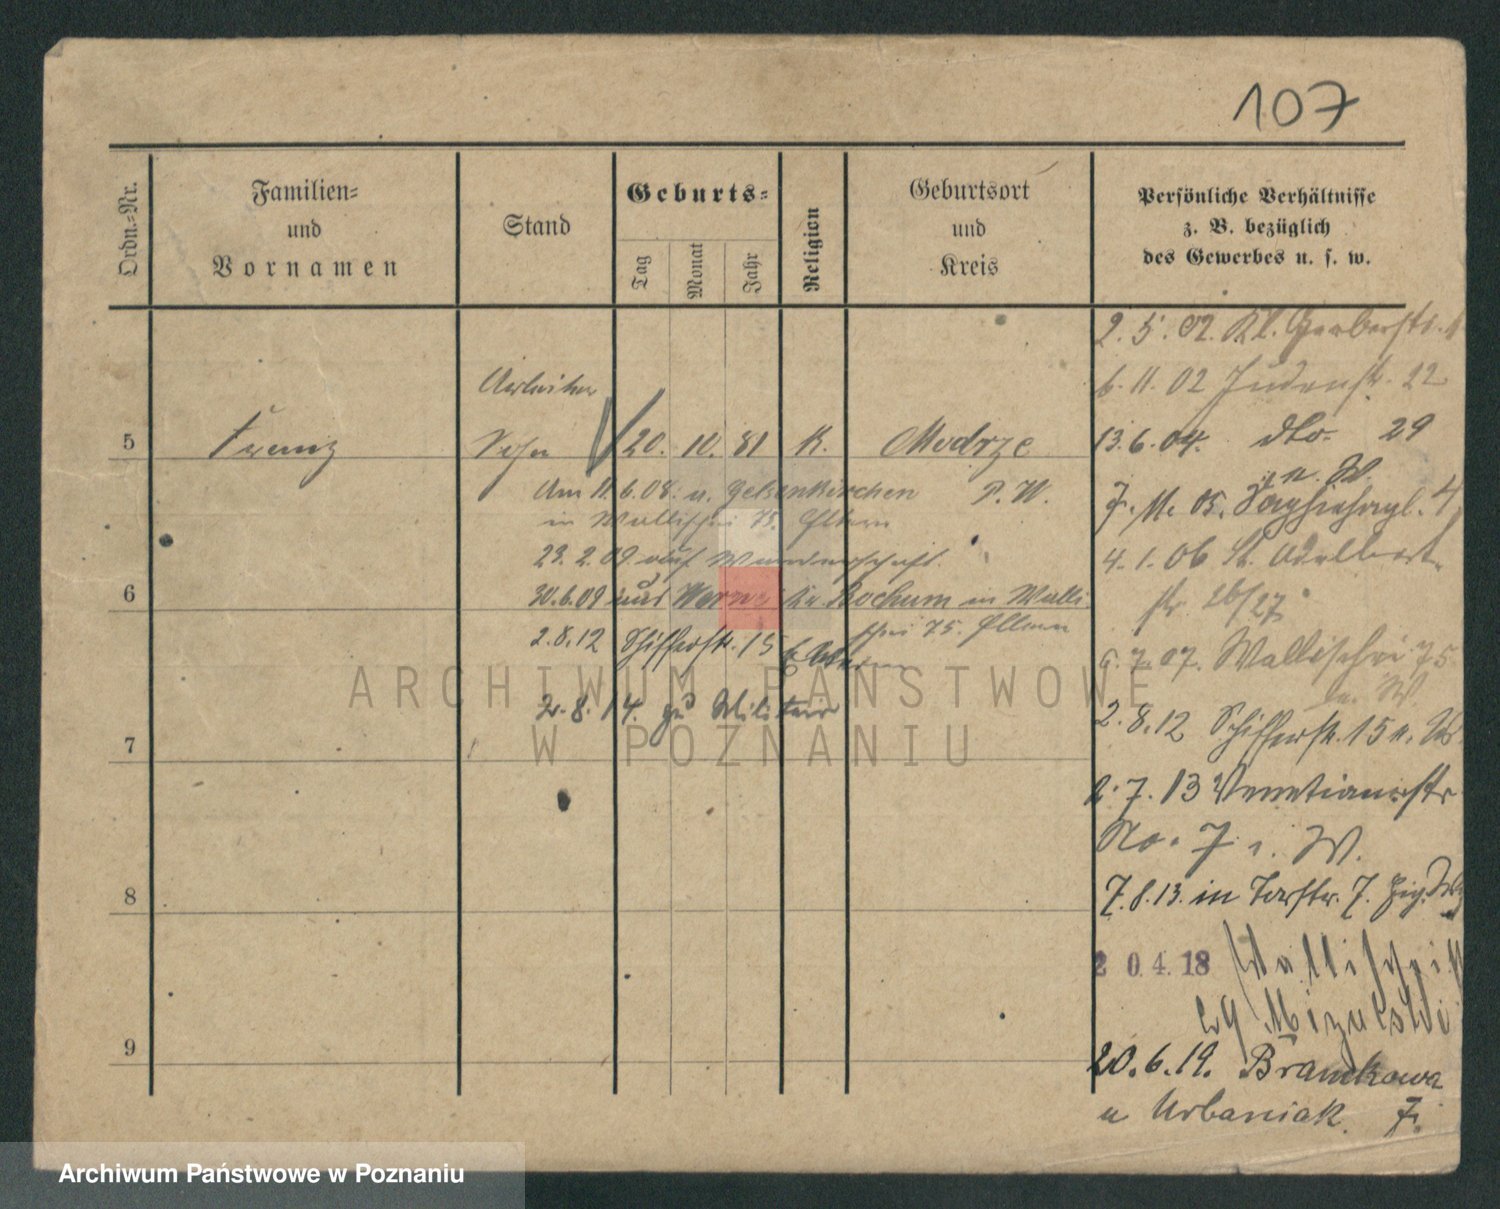 107
Ordn.=Nr.
Familien=
und
Vornamen
Stand
Geburts=
Tag
Monat
Jahr
Religion
Geburtsort
und
Kreis
Persönliche Verhältnisse
z. B. bezüglich
des Gewerbes u. s. w.
2. 5. 02. Kl. Gerberstr.
6. 11. 02 Judenstr. 22
Arbeiter
5 Franz Sohn 20. 10. 81 K. Modrze
13. 6. 04. dto 29
Am 11. 6. 08. n. Gelsenkirchen P. W.
in Wallischei 75. Eltern
7. 11. 05.
23. 2. 09 auf Wanderschaft.
4. 1. 06 St. Adalbert
str. 26/27
6
30. 6. 09 aus Kr. Bochum in Walli
schei 75. Eltern
2. 8. 12 Schifferstr. 15 b. Eltern
6. 7. 07. Wallischei 75
b. W.
2. 8. 14. zu Militair
2. 8. 12 Schifferstr. 15
7
2. 7. 13 Venetianerstr
No. 7 W.
7. 8. 13. in Torstr. 7.
8
2 0. 4. 18 Wallischei
9
20. 6. 19. Bramkowa
u Urbaniak. 7.
ARCHIWUM PAŃSTWOWE
W POZNANIU
Archiwum Państwowe w Poznaniu